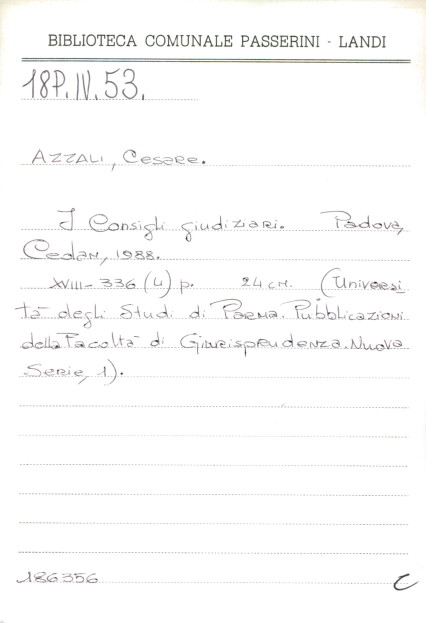 BIBLIOTECA COMUNALE PASSERINI - LANDI
18P.IV.53.
AZZALI, Cesare.
I Consigli giudiziari. Padova,
Cedam, 1988.
XVIII-336 (4) p. 24 cm. (Universi
tà degli Studi di Parma. Pubblicazioni
della Facoltà di Giurisprudenza. Nuova
Serie, 1).
186356
C